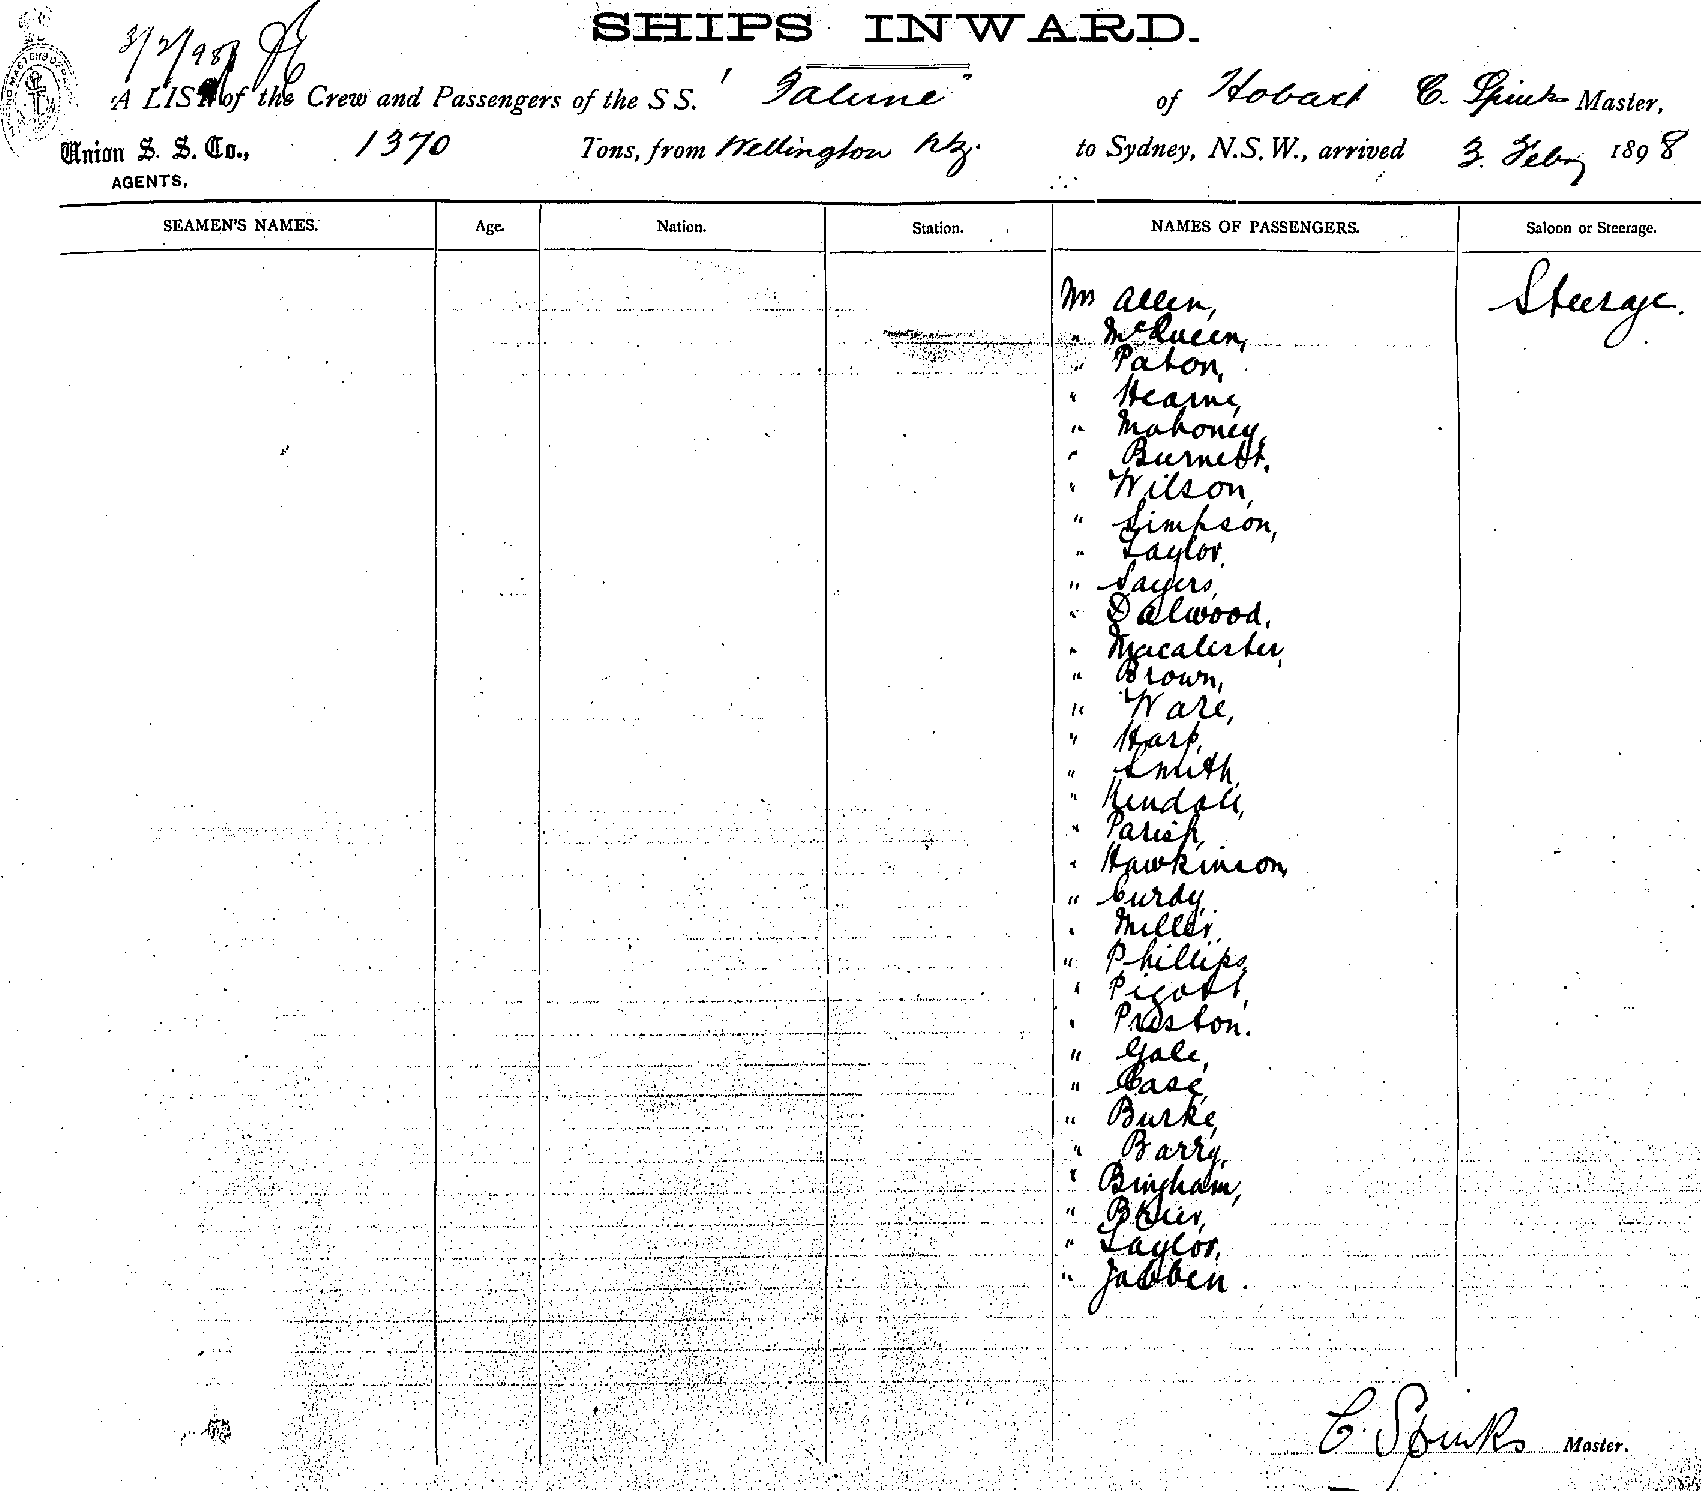 SHIPS INWARD.
3/2/98
A LIST of the Crew and Passengers of the S S. "Talune" of Hobart C. Spinks Master,
Union S. S. Co., 1370 Tons, from Wellington N.Z. to Sydney, N.S.W., arrived 3. Feby 1898
AGENTS,
SEAMEN'S NAMES. Age. Nation. Station. NAMES OF PASSENGERS. Saloon or Steerage.
Mr Allen, Steerage.
" McQueen,
" Paton,
" Hearne,
" Mahoney,
" Burnett,
" Wilson,
" Simpson,
" Taylor,
" Sayers,
" Dalwood,
" Macalister,
" Brown,
" Ware,
" Harp,
" Smith,
" Kendall,
" Parish,
" Hawkinson,
" Curdy,
" Miller,
" Phillips,
" Pigott,
" Preston.
" Gale,
" Case,
" Burke,
" Barry,
" Bingham,
" Brier,
" Taylor,
" Jabben.
C. Spinks Master.